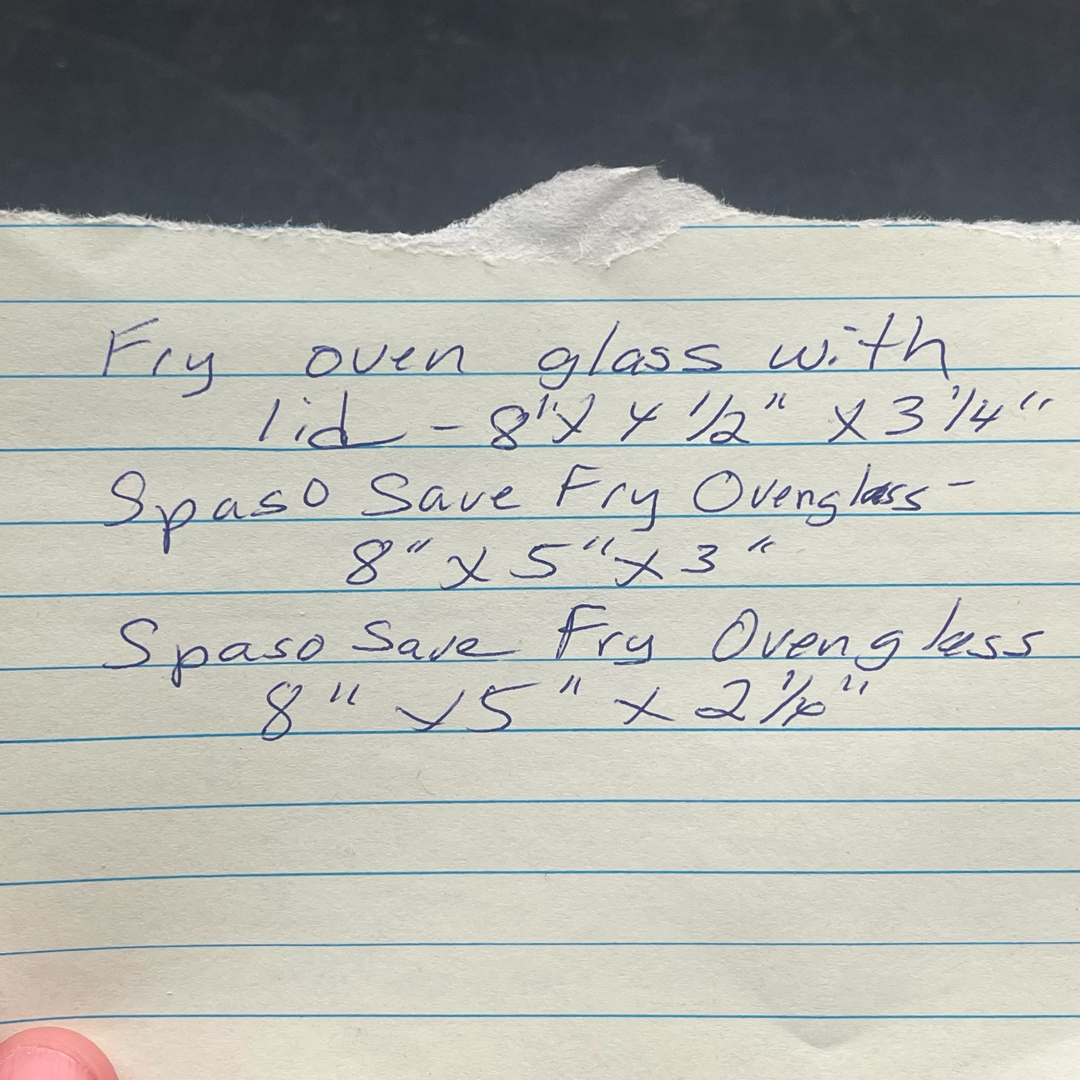 Fry oven glass with
lid - 8" x 4 1/2" x 3 1/4"
Spaso Save Fry Ovenglass -
8" x 5" x 3"
Spaso Save Fry Ovenglass
8" x 5" x 2 1/4"